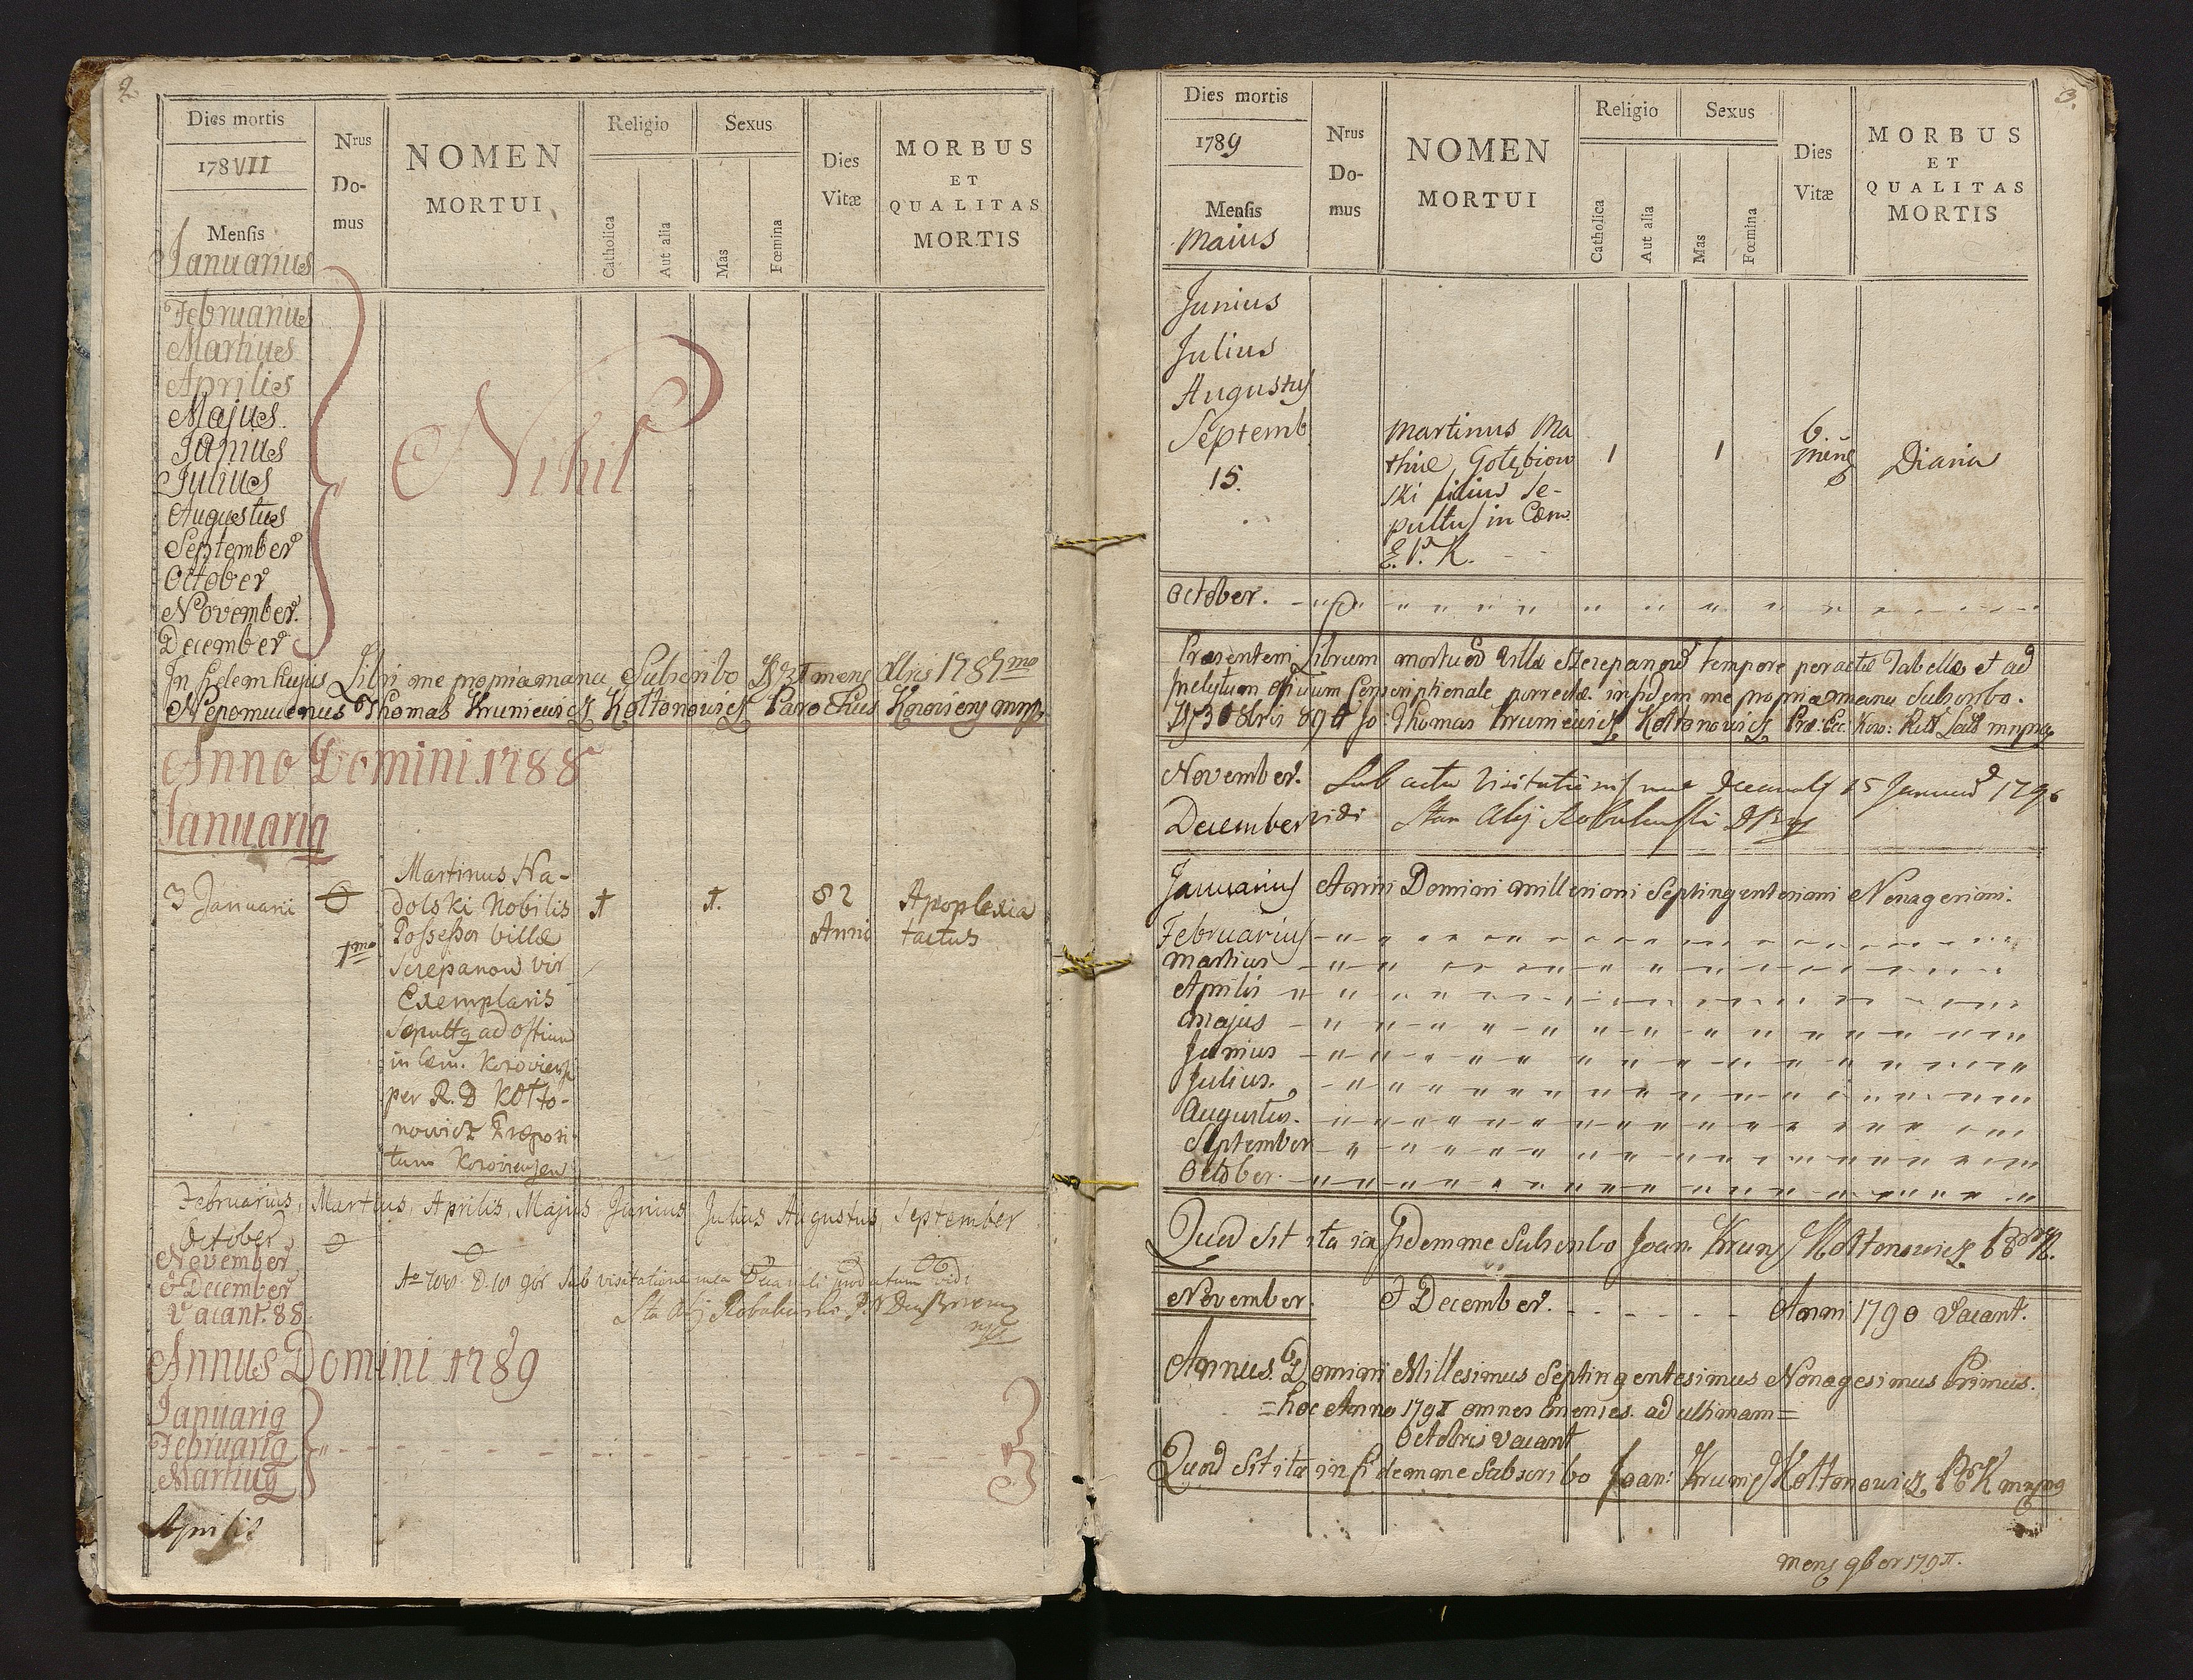 2
Dies mortis
178VII
Mensis
Januarius
Nrus
Do-
mus
NOMEN
MORTUI
Religio
Catholica
Aut alia
Sexus
Mas
Fœmina
Dies
Vitæ
MORBUS
ET
QUALITAS
MORTIS
Februarius
Martius
Aprilis
Majus
Junius
Julius
Augustus
September
October
November.
December
Nihil
In fidem hujus Libri me propria manu Subscribo
Nepomucenus Thomas Kruniewicz Kottonowicz Parochus
Anno Domini 1788
Januarig
3 Januarii
1mo
Martinus Na-
dolski Nobilis
Possessor villæ
Sczepanow vir
Exemplaris
Sepultg ad Ostium
in Cæm. Koroviensi
per R. D Kotto-
nowicz Præposi-
tum Koroviensem
82
Anni
Apoplexia
tactus
Februarius, Martius, Aprilis, Majus Junius Julius Augustus September
October
November
& December
Vacant. 88
Annus Domini 1789
Januarig
Februarig
Martiug
Aprilis
3.
Dies mortis
1789
Mensis
Maius
Nrus
Do-
mus
NOMEN
MORTUI
Religio
Catholica
Aut alia
Sexus
Mas
Fœmina
Dies
Vitæ
MORBUS
ET
QUALITAS
MORTIS
Junius
Julius
Augustus
Septemb
15.
Martinus Ma
thiæ Gotębiow
ski filius Se-
pultus in Cœm.
E. P. K.
1
1
6.
mens
Diaria
October.
Præsentem Librum mortuor villæ Szczepanow tempore peractæ Tabellæ et ad
Inclytum Officium Conscriptionale porrectæ in fidem me propria manu Subscribo.
Thomas Kruniewicz Kottonowicz
November. Sub actu Visitationis meæ Decanalis 15 Januarii
December vidi
Januarius Anni Domini millesimi Septingentesimi Nonagesimi.
Februarius
Martius
Aprilis
Majus
Junius
Julius.
Augustus.
September
October.
Quod sit ita in fidem me Subscribo Joan. Kottonowicz
November. & December. Anni 1790 Vacant.
Annus Domini Millesimus Septingentesimus Nonagesimus Primus.
= hoc Anno 1791 omnes menses ad ultimam =
Octobris vacant
Quod sit ita in fidem me Subscribo Joan: Kottonowicz